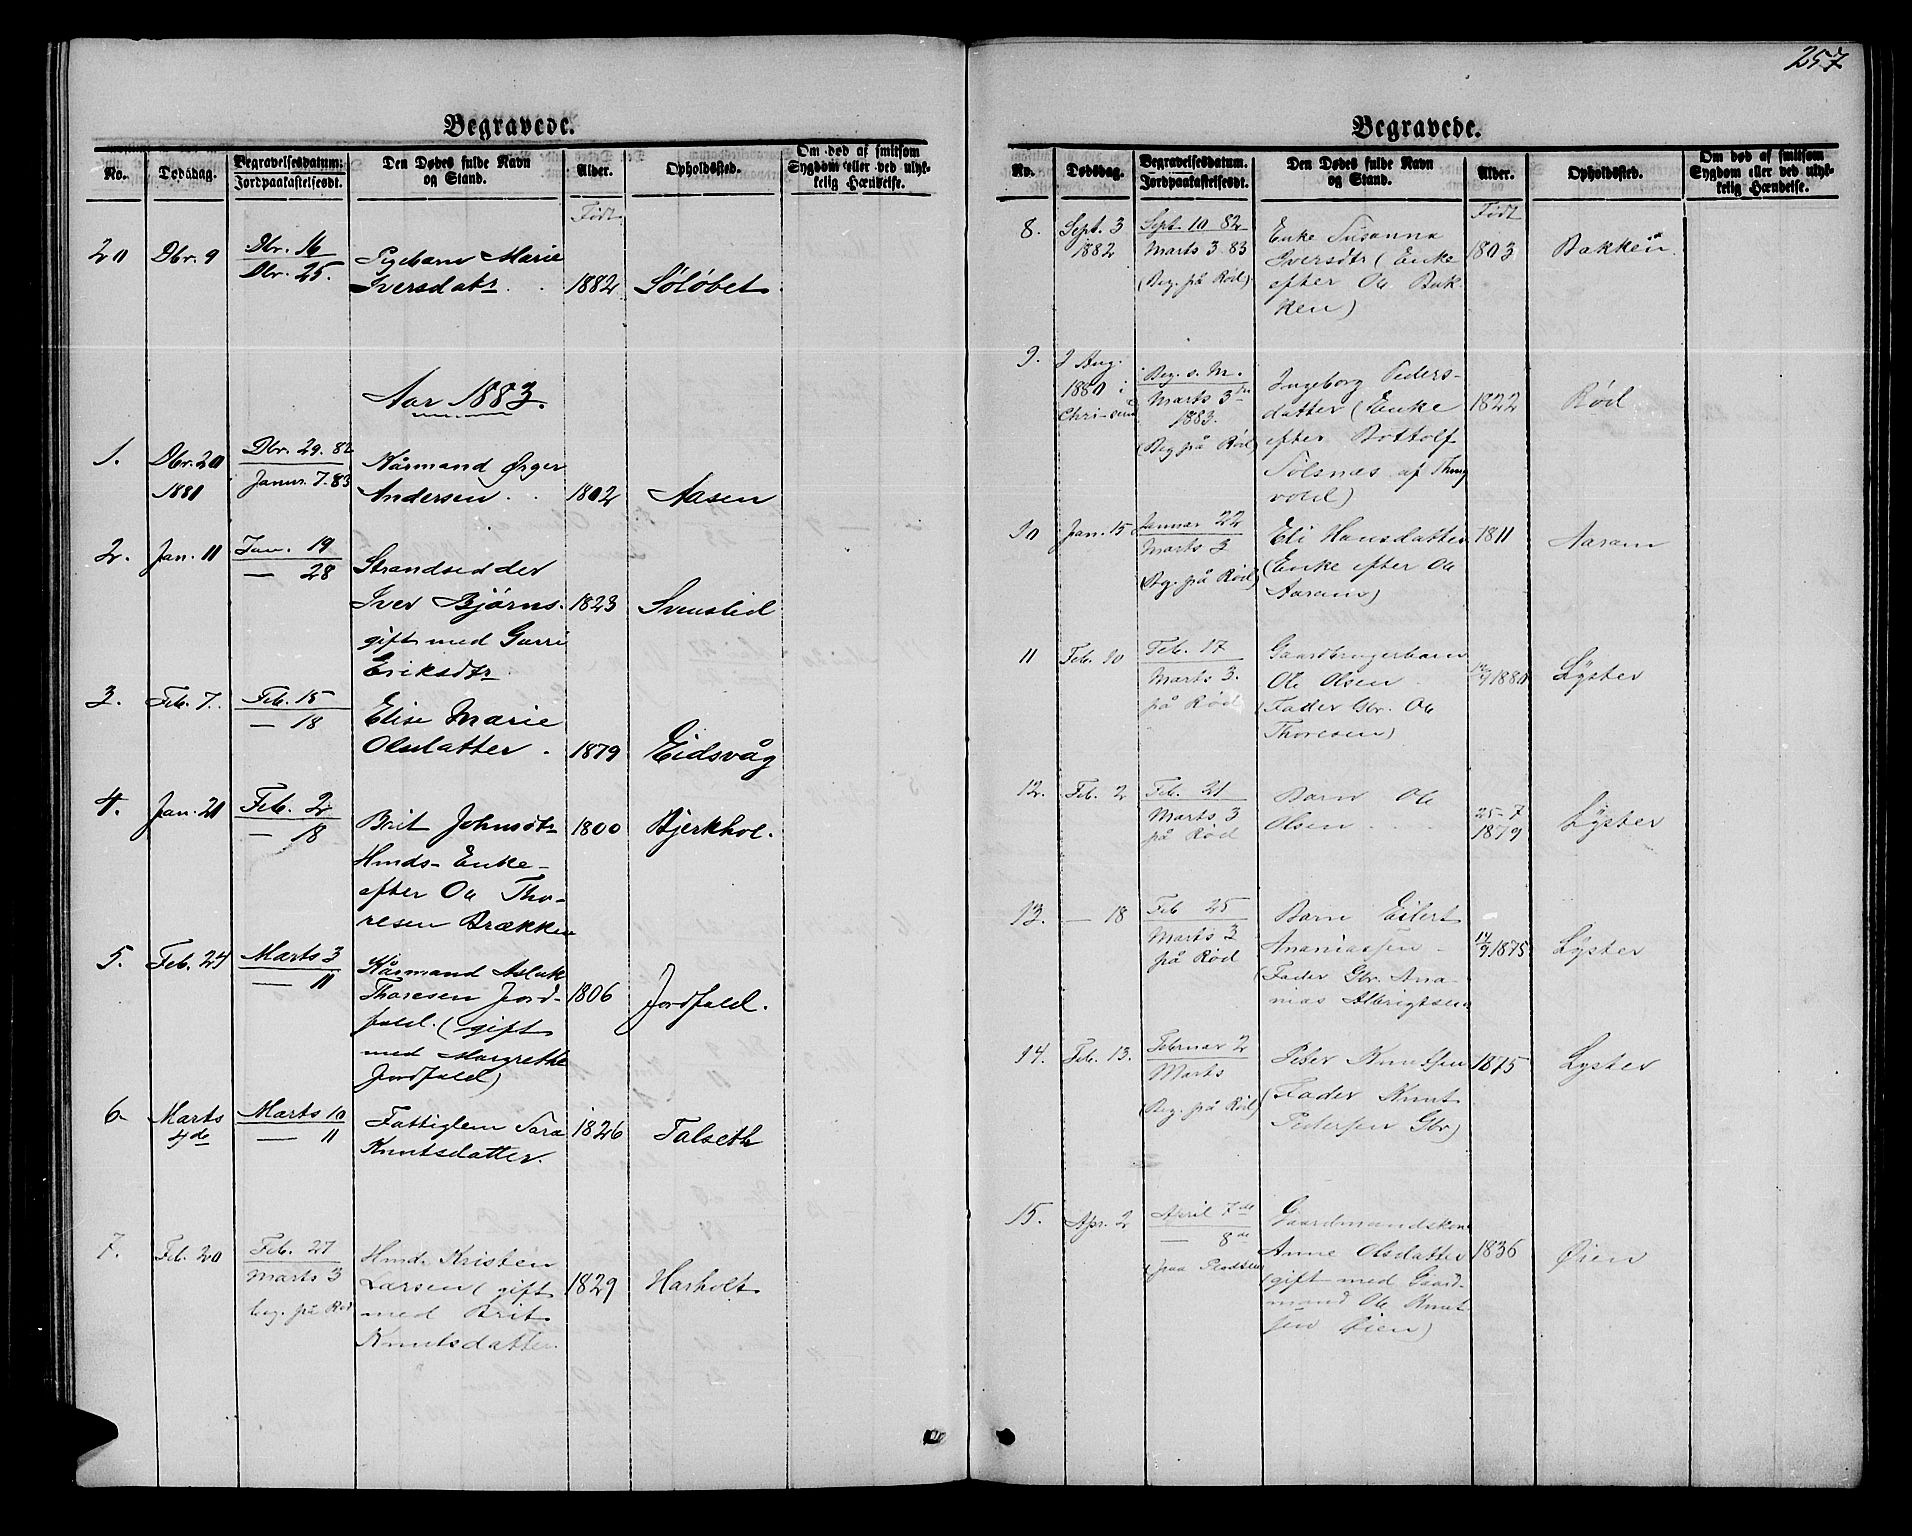 257
Begravede.
No.
Dødsdag.
Begravelsesdatum:
Jordpaakastelsesdt.
Den Dødes fulde Navn
og Stand.
Alder.
Opholdssted.
Om død af smitsom
Sygdom eller ved ulyk-
kelig Hændelse.
Født
20 Dbr. 9 Dbr. 16
Dbr. 25.
Pigebarn Marie
Iversdatr. 1882 Søløbet
Aar 1883.
1. Dbr. 20 Dbr. 29. 82
Januar 7. 83
Kårmand
Andersen. 1802 Aasen
2. Jan. 11 Jan. 19
— 28
Strandsidder
Iver Bjørns. 1823 Svenslid
gift med Gurri
Eriksdtr.
3. Feb. 7. Feb. 15
— 18
Elise Marie
Olsdatter. 1879 Eidsvåg
4. Jan. 21 Feb. 2
— 18
Brit Johnsdtr 1800 Bjerkhol.
Hmds- Enke-
efter Ole Tho-
resen Brækken
5. Feb. 24 Marts 3
— 11
Kårmand Aslak
Thoresen Jord- 1806 Jordfald.
fald. (gift
med Margrethe
Jordfald)
6. Marts
4de
Marts 10
— 11
Fattiglem Sara 1826 Talseth
Knutsdatter.
7. Feb. 20 Feb. 27
Marts 3
beg. på Rød
Hmd. Kristen
Larsen (gift 1829 Harholt
med Brit
Knutsdatter
Begravede.
No.
Dødsdag.
Begravelsesdatum.
Jordpaakastelsesdt.
Den Dødes fulde Navn
og Stand.
Alder.
Opholdssted.
Om død af smitsom
Sygdom eller ved ulyk-
kelig Hændelse.
Født
8. Sept. 3
1882
Sept. 10 82
Marts 3. 83
(Beg. på Rød)
Enke Susanna
Iversdtr (Enke 1803 Bakken
efter Ole Bak-
ken)
9. 2 Aug.
1880 i
Beg. s. M.
Marts 3
1883.
(Beg på Rød)
Ingeborg Peders-
datter (Enke 1822 Rød
efter Bottolf
Solsnæs af Thing
vold)
10 Jan. 15 Januar 22
Marts 3
(Beg. på Rød)
Eli Hansdatter 1811 Aaram
(Enke efter Ole
Aaram)
11 Feb. 10 Feb. 17
Marts 3.
på Rød
Gaardbrugerbarn
Ole Olsen 1880 Lyster
(Fader Gbr. Ole
Thoresen)
12. Feb. 2 Feb. 21
Marts 3
på Rød
Barn Ole
Olsen 25-7
1879 Lyster
13. — 18 Feb 25
Marts 3
på Rød
Barn Eilert
Ananiassen 14/9 1875 Lyster
(Fader Gbr. Ana-
nias Albrigtsen
14. Feb. 13. Februar 2
Marts
(Beg. på Rød)
Peder Knutsen 1875 Lyster
(Fader Knut
Pedersen Gbr)
15. Apr. 2 April 7de
— 8de
Gaardmandskone
Anne Olsdatter 1836 Øien
(gift med Gaard-
mand Ole Knut-
sen Øien)